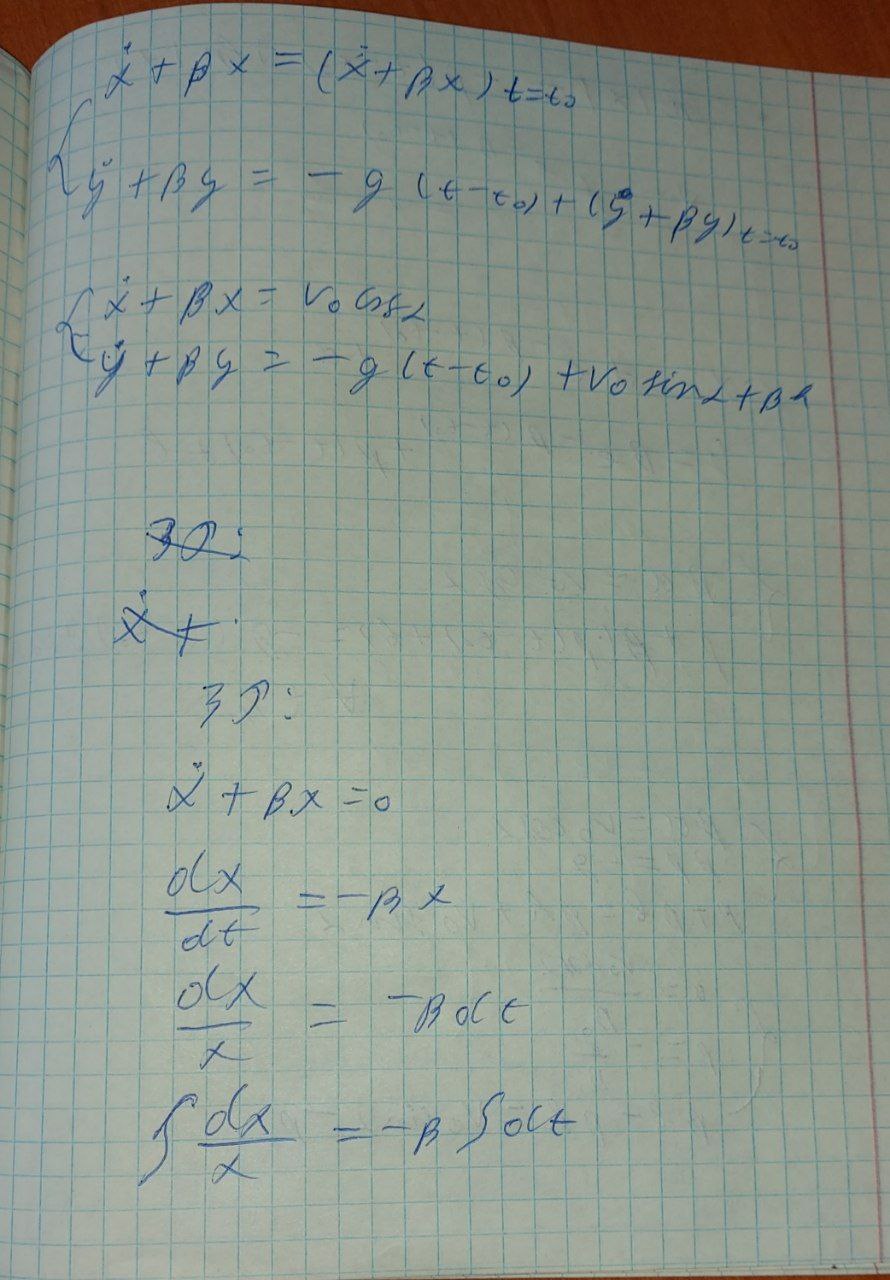 ẋ + βx = (ẋ + βx) t=t₀
ẏ + βy = − g (t−t₀) + (ẏ + βy) t=t₀
ẋ + βx = v₀ cosα
ẏ + βy = − g (t−t₀) + v₀ sinα + βh
ẋ +
ẋ + βx = 0
dx/dt = −βx
dx/x = −βdt
∫ dx/x = −β ∫ dt